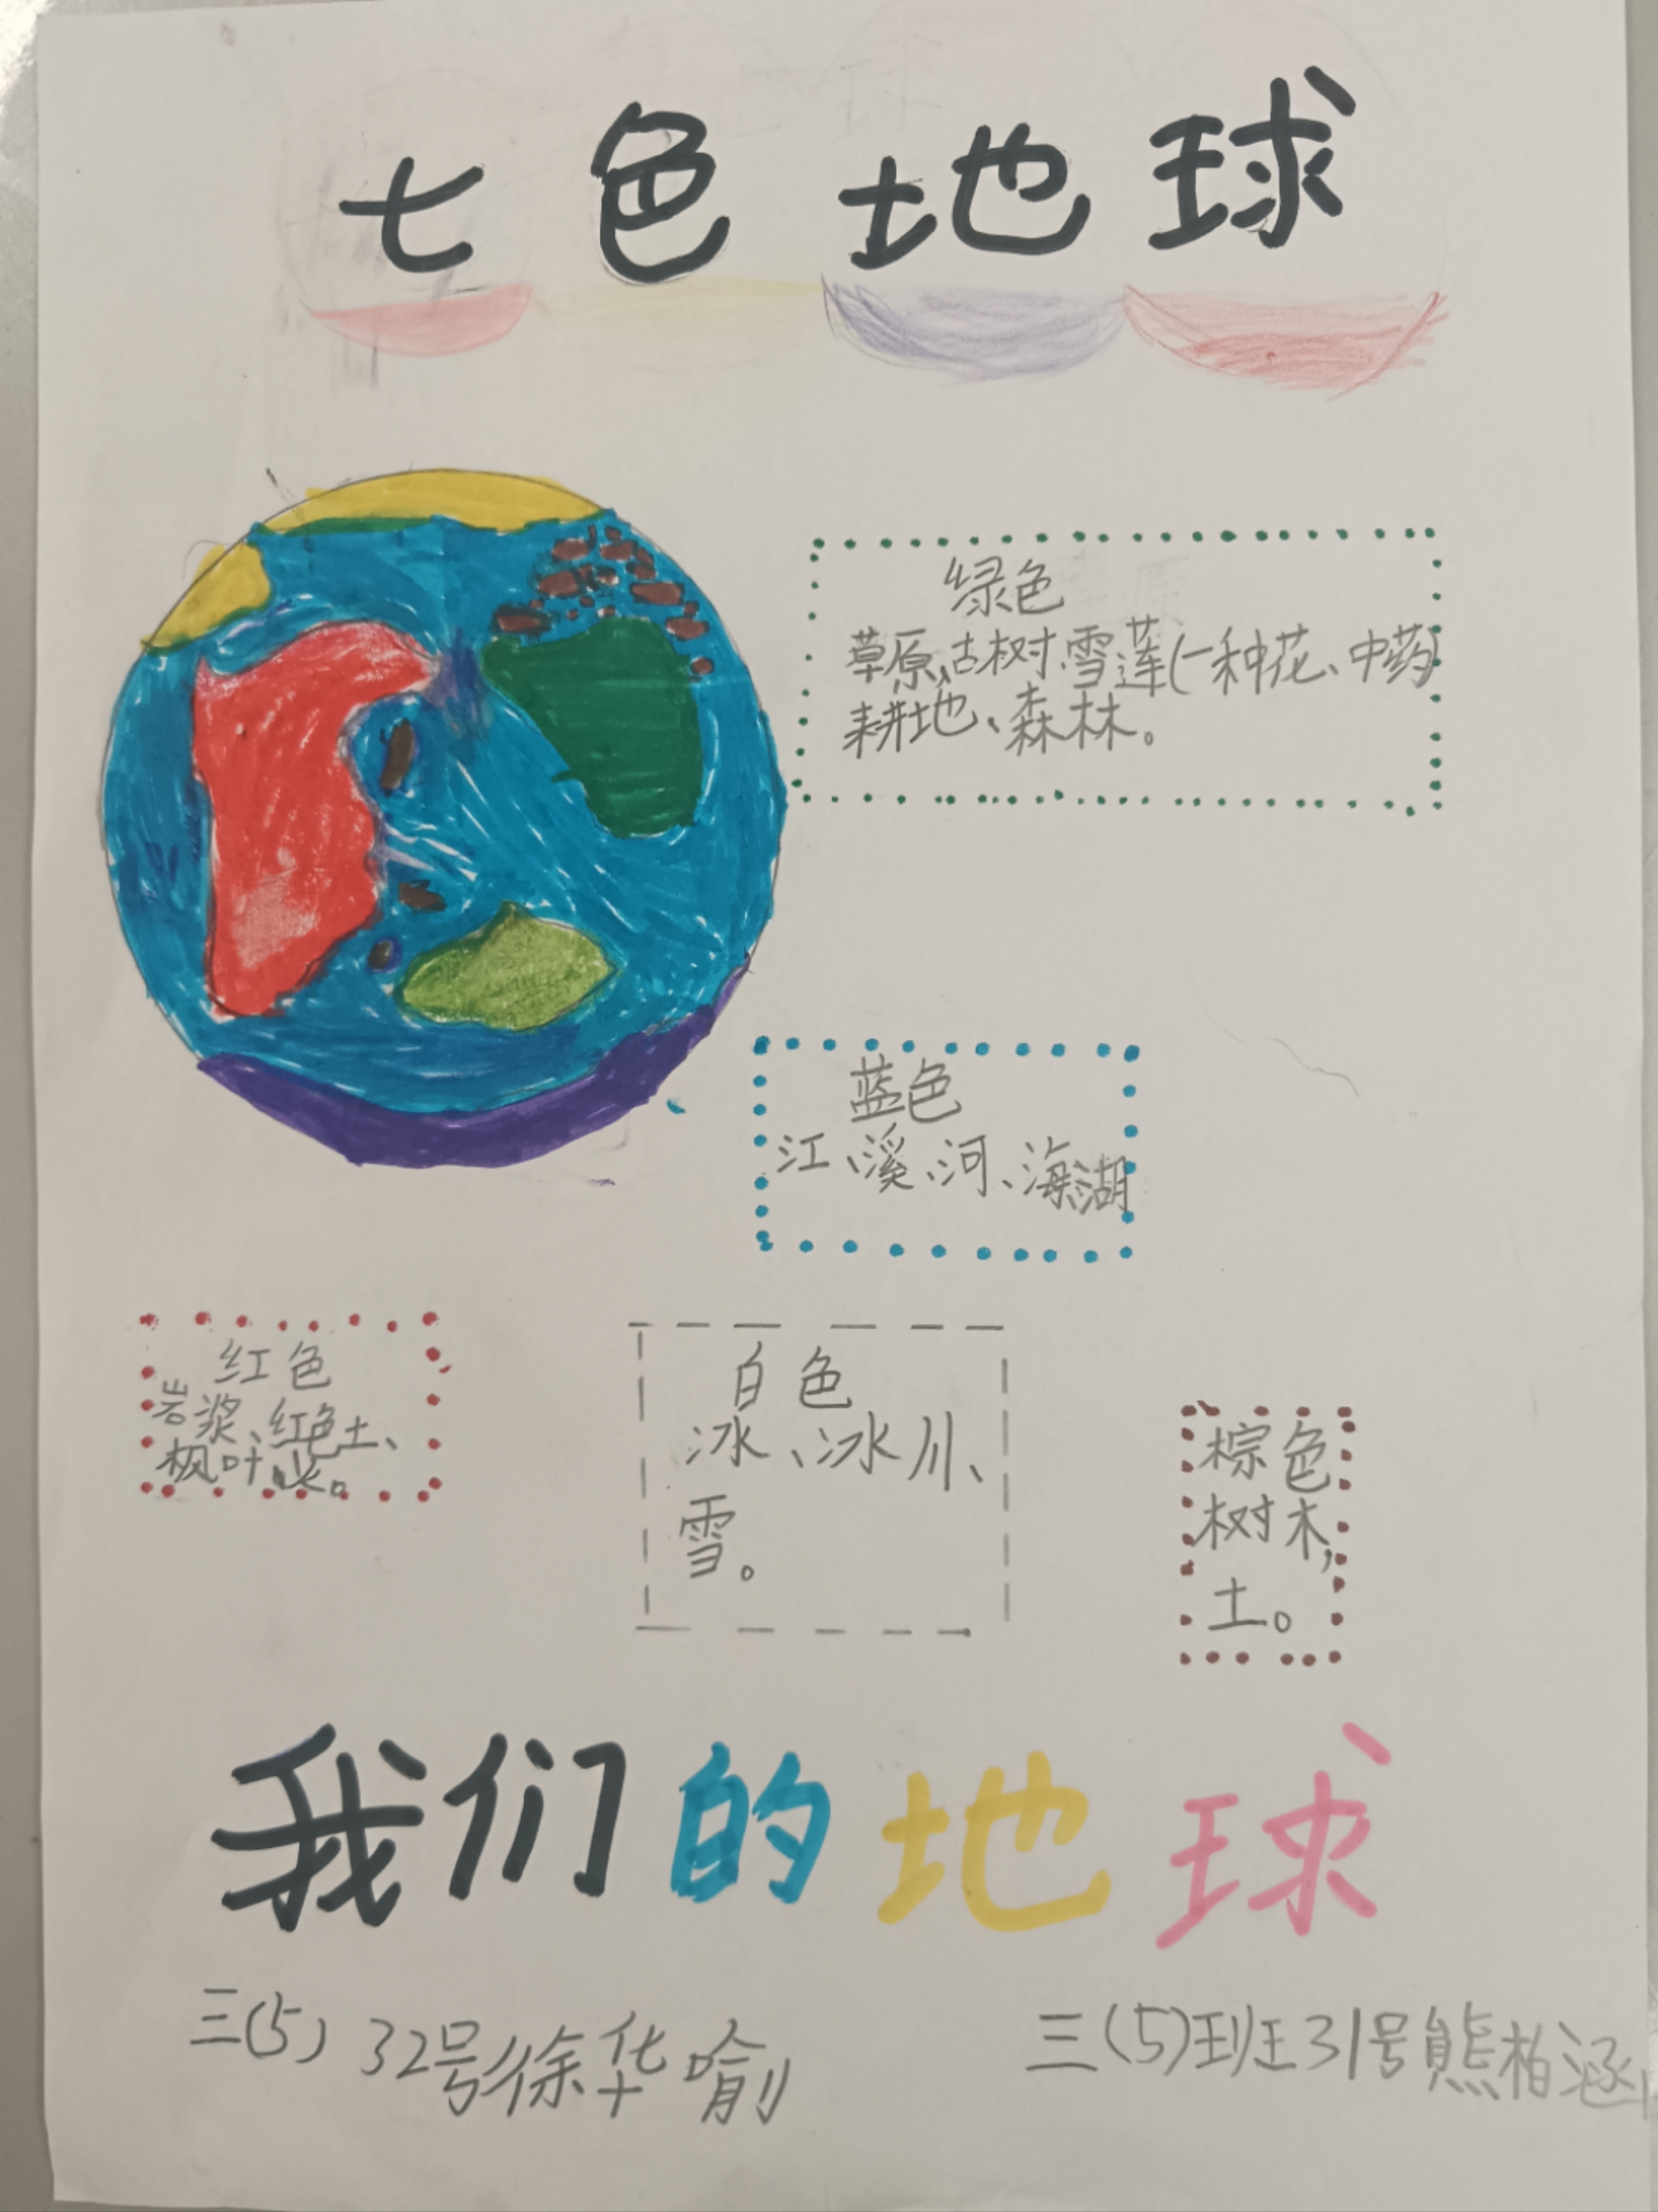 七色地球
绿色
草原、古树、雪莲(一种花、中药)
耕地、森林。
蓝色
江、溪、河、海、湖
红色
岩浆、红色土、
枫叶、火。
白色
冰、冰川、
雪。
棕色
树木,
土。
我们的地球
三(5) 32号徐华喻
三(5)班31号熊柏涵